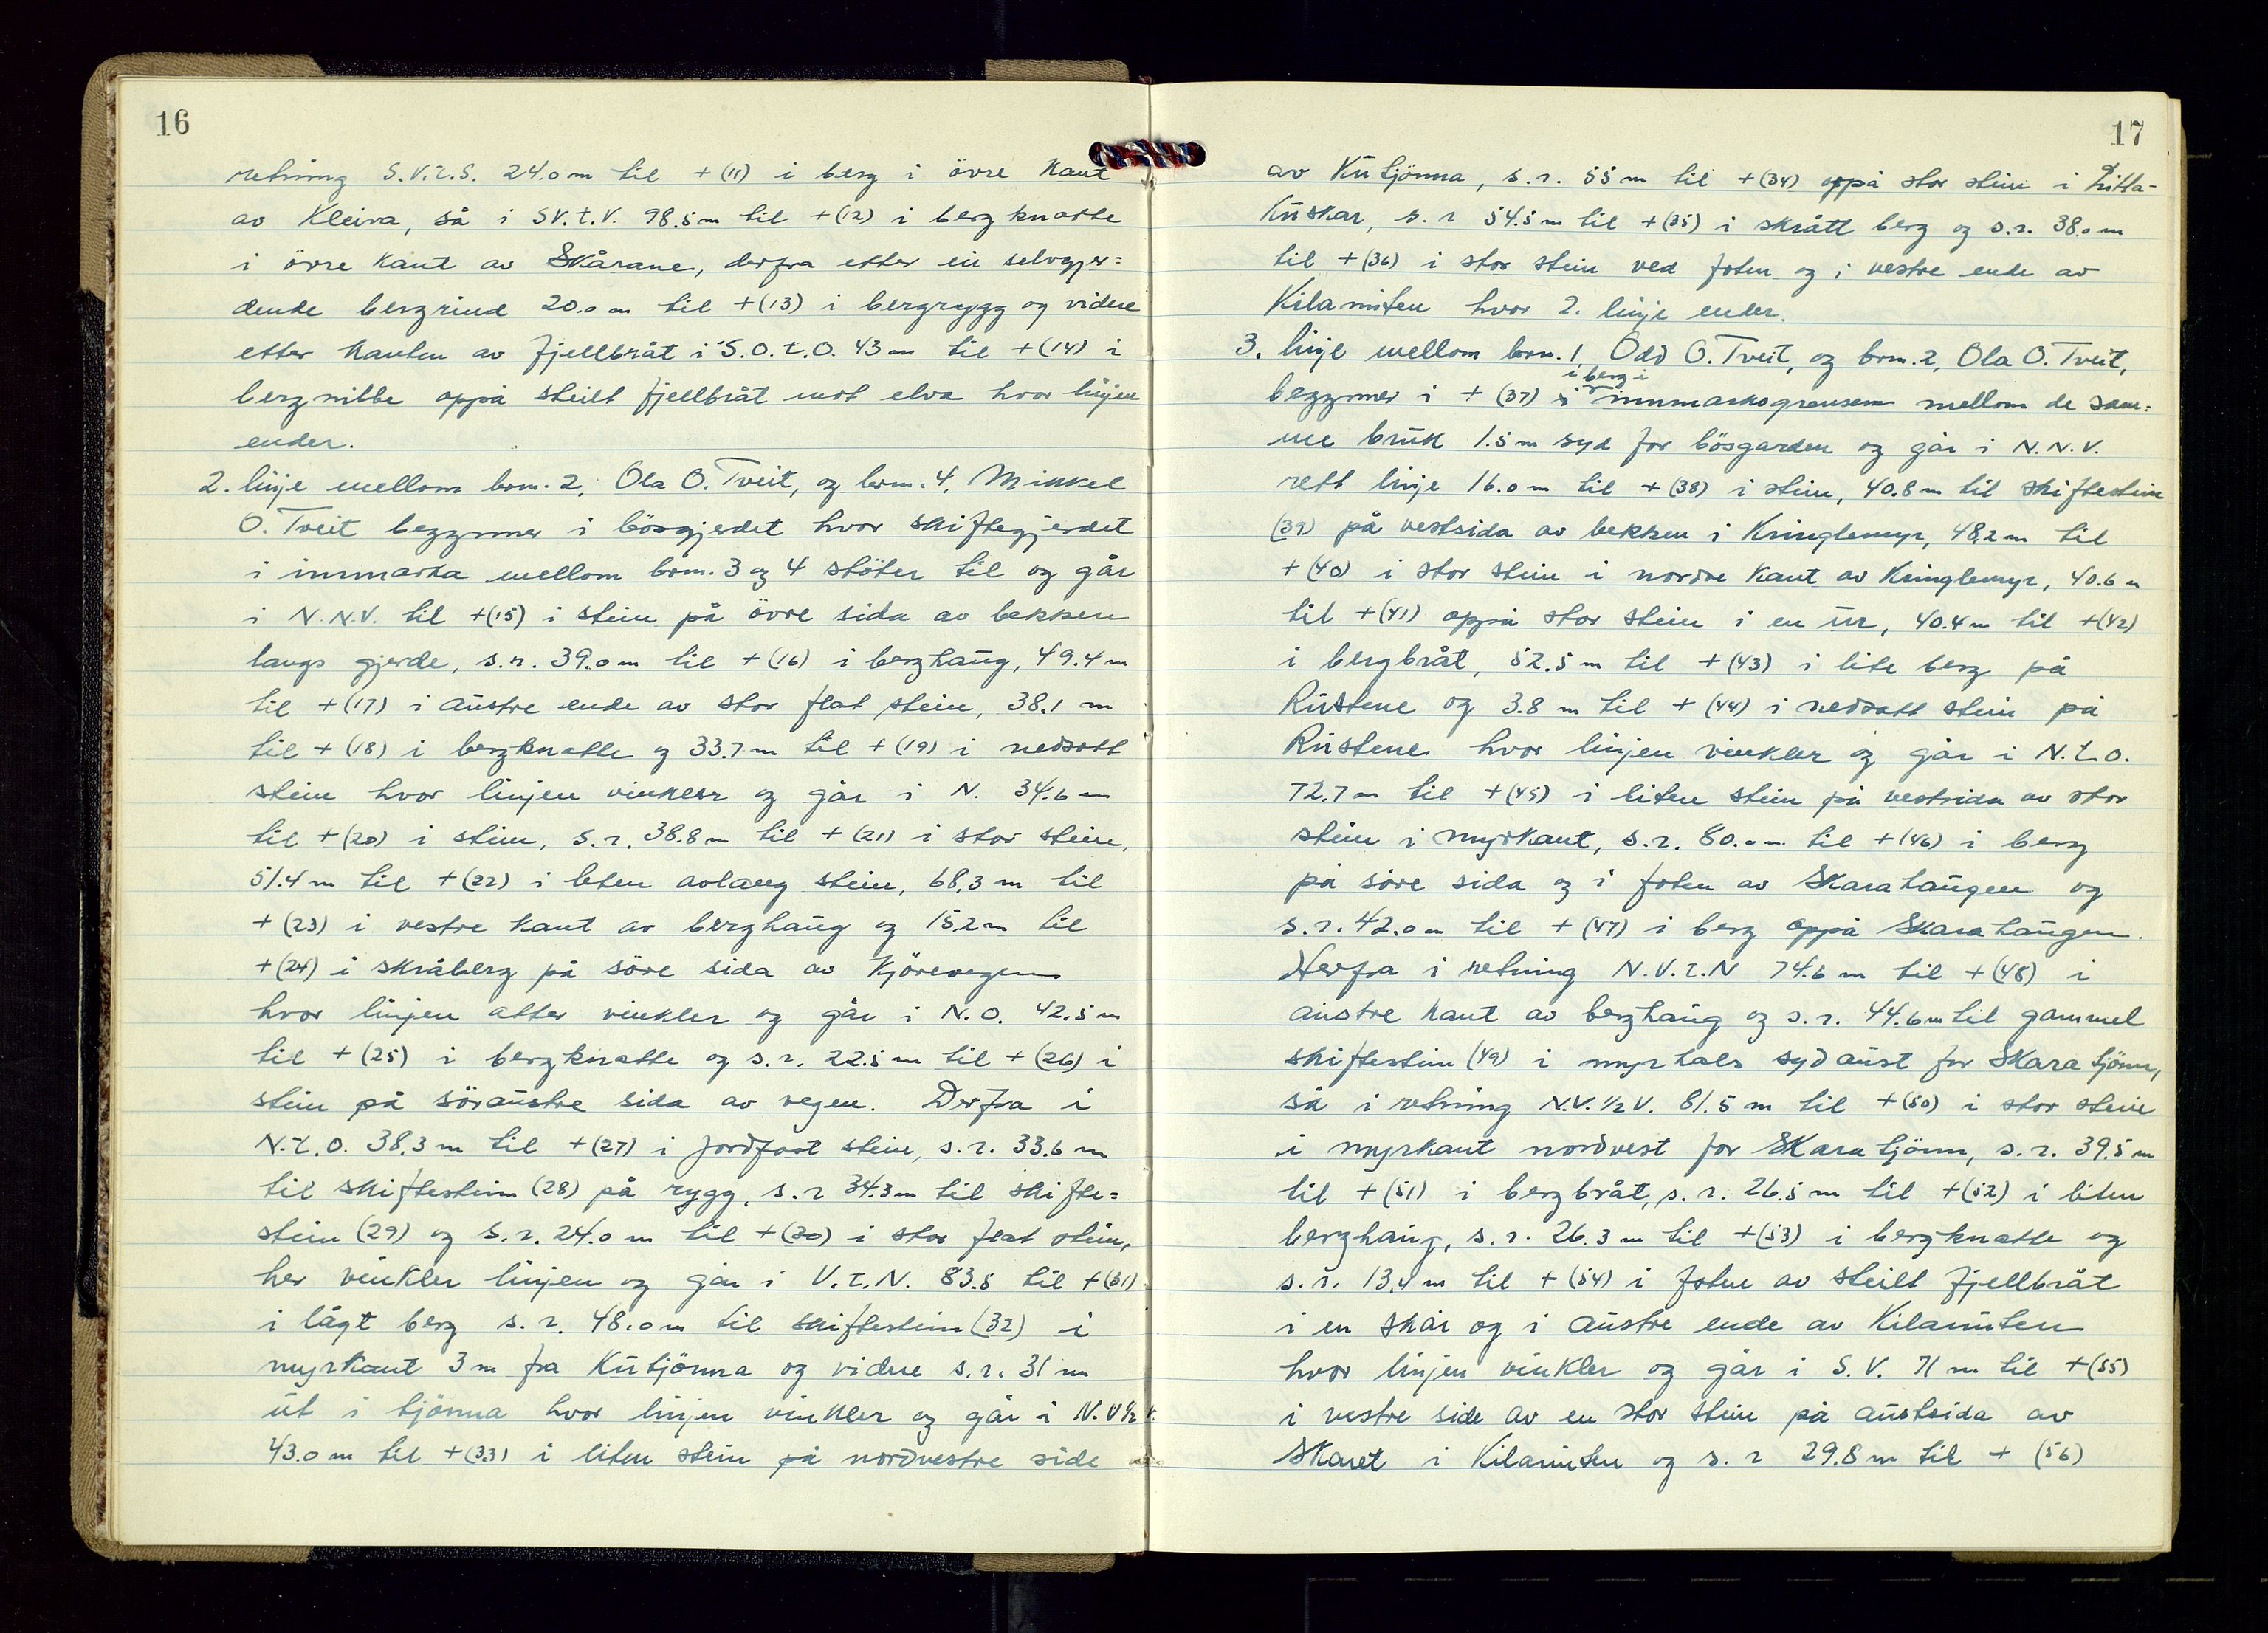 16
retning S.V.t.S. 24.0 m til + (11) i berg i övre kant
av Kleiva, så i SV.t.V. 98.5 m til + (12) i bergknatte
i övre kant av Skårane, derfra etter ein selvgjer=
dende bergrind 20.0 m til + (13) i bergrygg og videre
etter kanten av fjellbråt i S.O.t.O. 43 m til + (14) i
bergnibbe oppå steilt fjellbråt mot elva hvor linjen
ender.
2. linje mellom brn. 2, Ola O. Tveit, og brn. 4, Mikkel
O. Tveit begynner i bösgjerdet hvor skiftegjerdet
i innmarka mellom brn. 3 og 4 stöter til og går
i N.N.V. til + (15) i stein på övre sida av bekken
langs gjerde, s.r. 39.0 m til + (16) i berghaug, 49.4 m
til + (17) i austre ende av stor flat stein, 38.1 m
til + (18) i bergknatte og 33.7 m til + (19) i nedsatt
stein hvor linjen vinkler og går i N. 34.6 m
til + (20) i stein, s.r. 38.8 m til + (21) i stor stein,
51.4 m til + (22) i liten avlang stein, 68.3 m til
+ (23) i vestre kant av berghaug og 15.2 m til
+ (24) i skråberg på söre sida av kjörevegen
hvor linjen atter vinkler og går i N.O. 42.5 m
til + (25) i bergknatte og s.r. 22.5 m til + (26) i
stein på söraustre sida av vegen. Derfra i
N.t.O. 38.3 m til + (27) i jordfast stein, s.r. 33.6 m
til skiftestein (28) på rygg, s.r 34.3 m til skifte=
stein (29) og s.r. 24.0 m til + (30) i stor flat stein,
her vinkler linjen og går i V.t.N. 83.5 til + (31)
i lågt berg s.r. 48.0 m til skiftestein (32) i
myrkant 3 m fra Kutjönna og videre s.r. 31 m
ut i tjönna hvor linjen vinkler og går i N.V½V.
43.0 m til + (33) i liten stein på nordvestre side
17
av Kutjönna, s.r. 55 m til + (34) oppå stor stein i Litla-
Kuskar, s.r 54.5 m til + (35) i skrått berg og s.r. 38.0 m
til + (36) i stor stein ved foten og i vestre ende av
Kilanuten hvor 2. linje ender.
3. linje mellom brn. 1, Odd O. Tveit, og brn. 2, Ola O. Tveit,
i berg i
begynner i + (37) i innmarksgrensen mellom de sam=
me bruk 1.5 m syd for bösgarden og går i N.N.V.
rett linje 16.0 m til + (38) i stein, 40.8 m til skiftestein
(39) på vestsida av bekken i Kringlemyr, 48.2 m til
+ (40) i stor stein i nordre kant av Kringlemyr, 40.6 m
til + (41) oppå stor stein i en ur, 40.4 m til + (42)
i bergbråt, 52.5 m til + (43) i lite berg på
Rustene og 3.8 m til + (44) i nedsatt stein på
Rustene hvor linjen vinkler og går i N.t.O.
72.7 m til + (45) i liten stein på vestsida av stor
stein i myrkant, s.r. 80.0 m til + (46) i berg
på söre sida og i foten av Skarahaugen og
s.r. 42.0 m til + (47) i berg oppå Skarahaugen.
Herfra i retning N.V.t.N 74.6 m til + (48) i
austre kant av berghaug og s.r. 44.6 m til gammel
skiftestein (49) i myrhals sydaust for Skaratjönn,
så i retning N.V.½V. 81.5 m til + (50) i stor stein
i myrkant nordvest for Skaratjönn, s.r. 39.5 m
til + (51) i bergbråt, s.r. 26.5 m til + (52) i liten
berghaug, s.r. 26.3 m til + (53) i bergknatte og
s.r. 13.4 m til + (54) i foten av steilt fjellbråt
i en skar og i austre ende av Kilanuten
hvor linjen vinkler og går i S.V. 71 m til + (55)
i vestre side av en stor stein på austsida av
Skaret i Kilanuten og s.r 29.8 m til + (56)